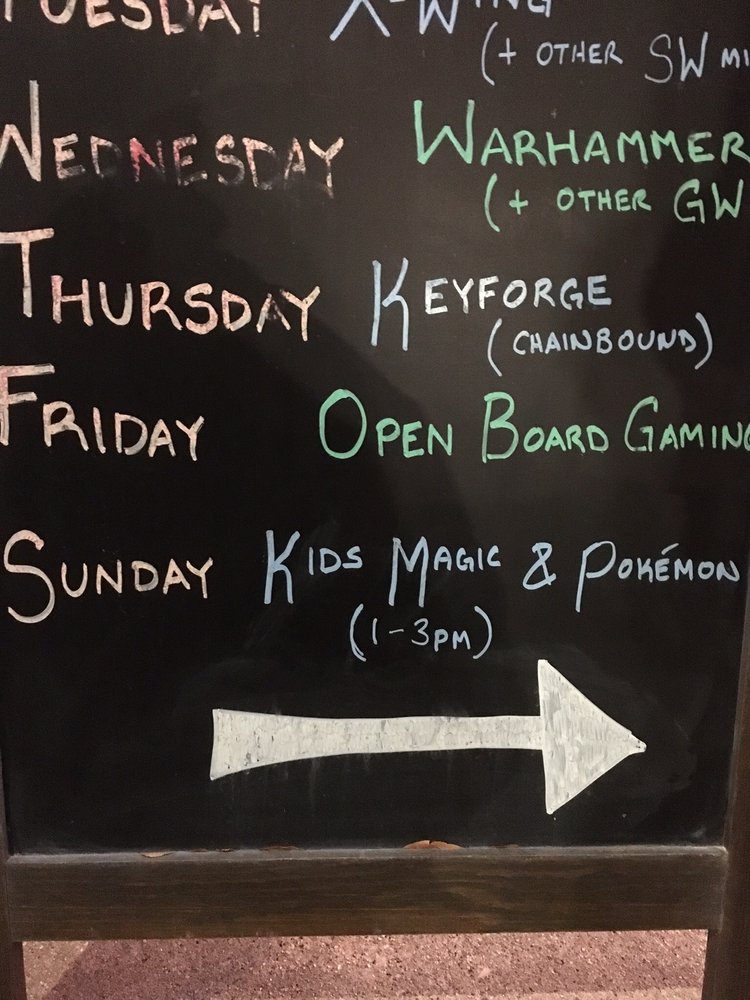 TUESDAY X-WING
(+ OTHER SW
WEDNESDAY WARHAMMER
(+ OTHER GW
THURSDAY KEYFORGE
(CHAINBOUND)
FRIDAY OPEN BOARD GAMING
SUNDAY KIDS MAGIC & POKÉMON
(1-3PM)